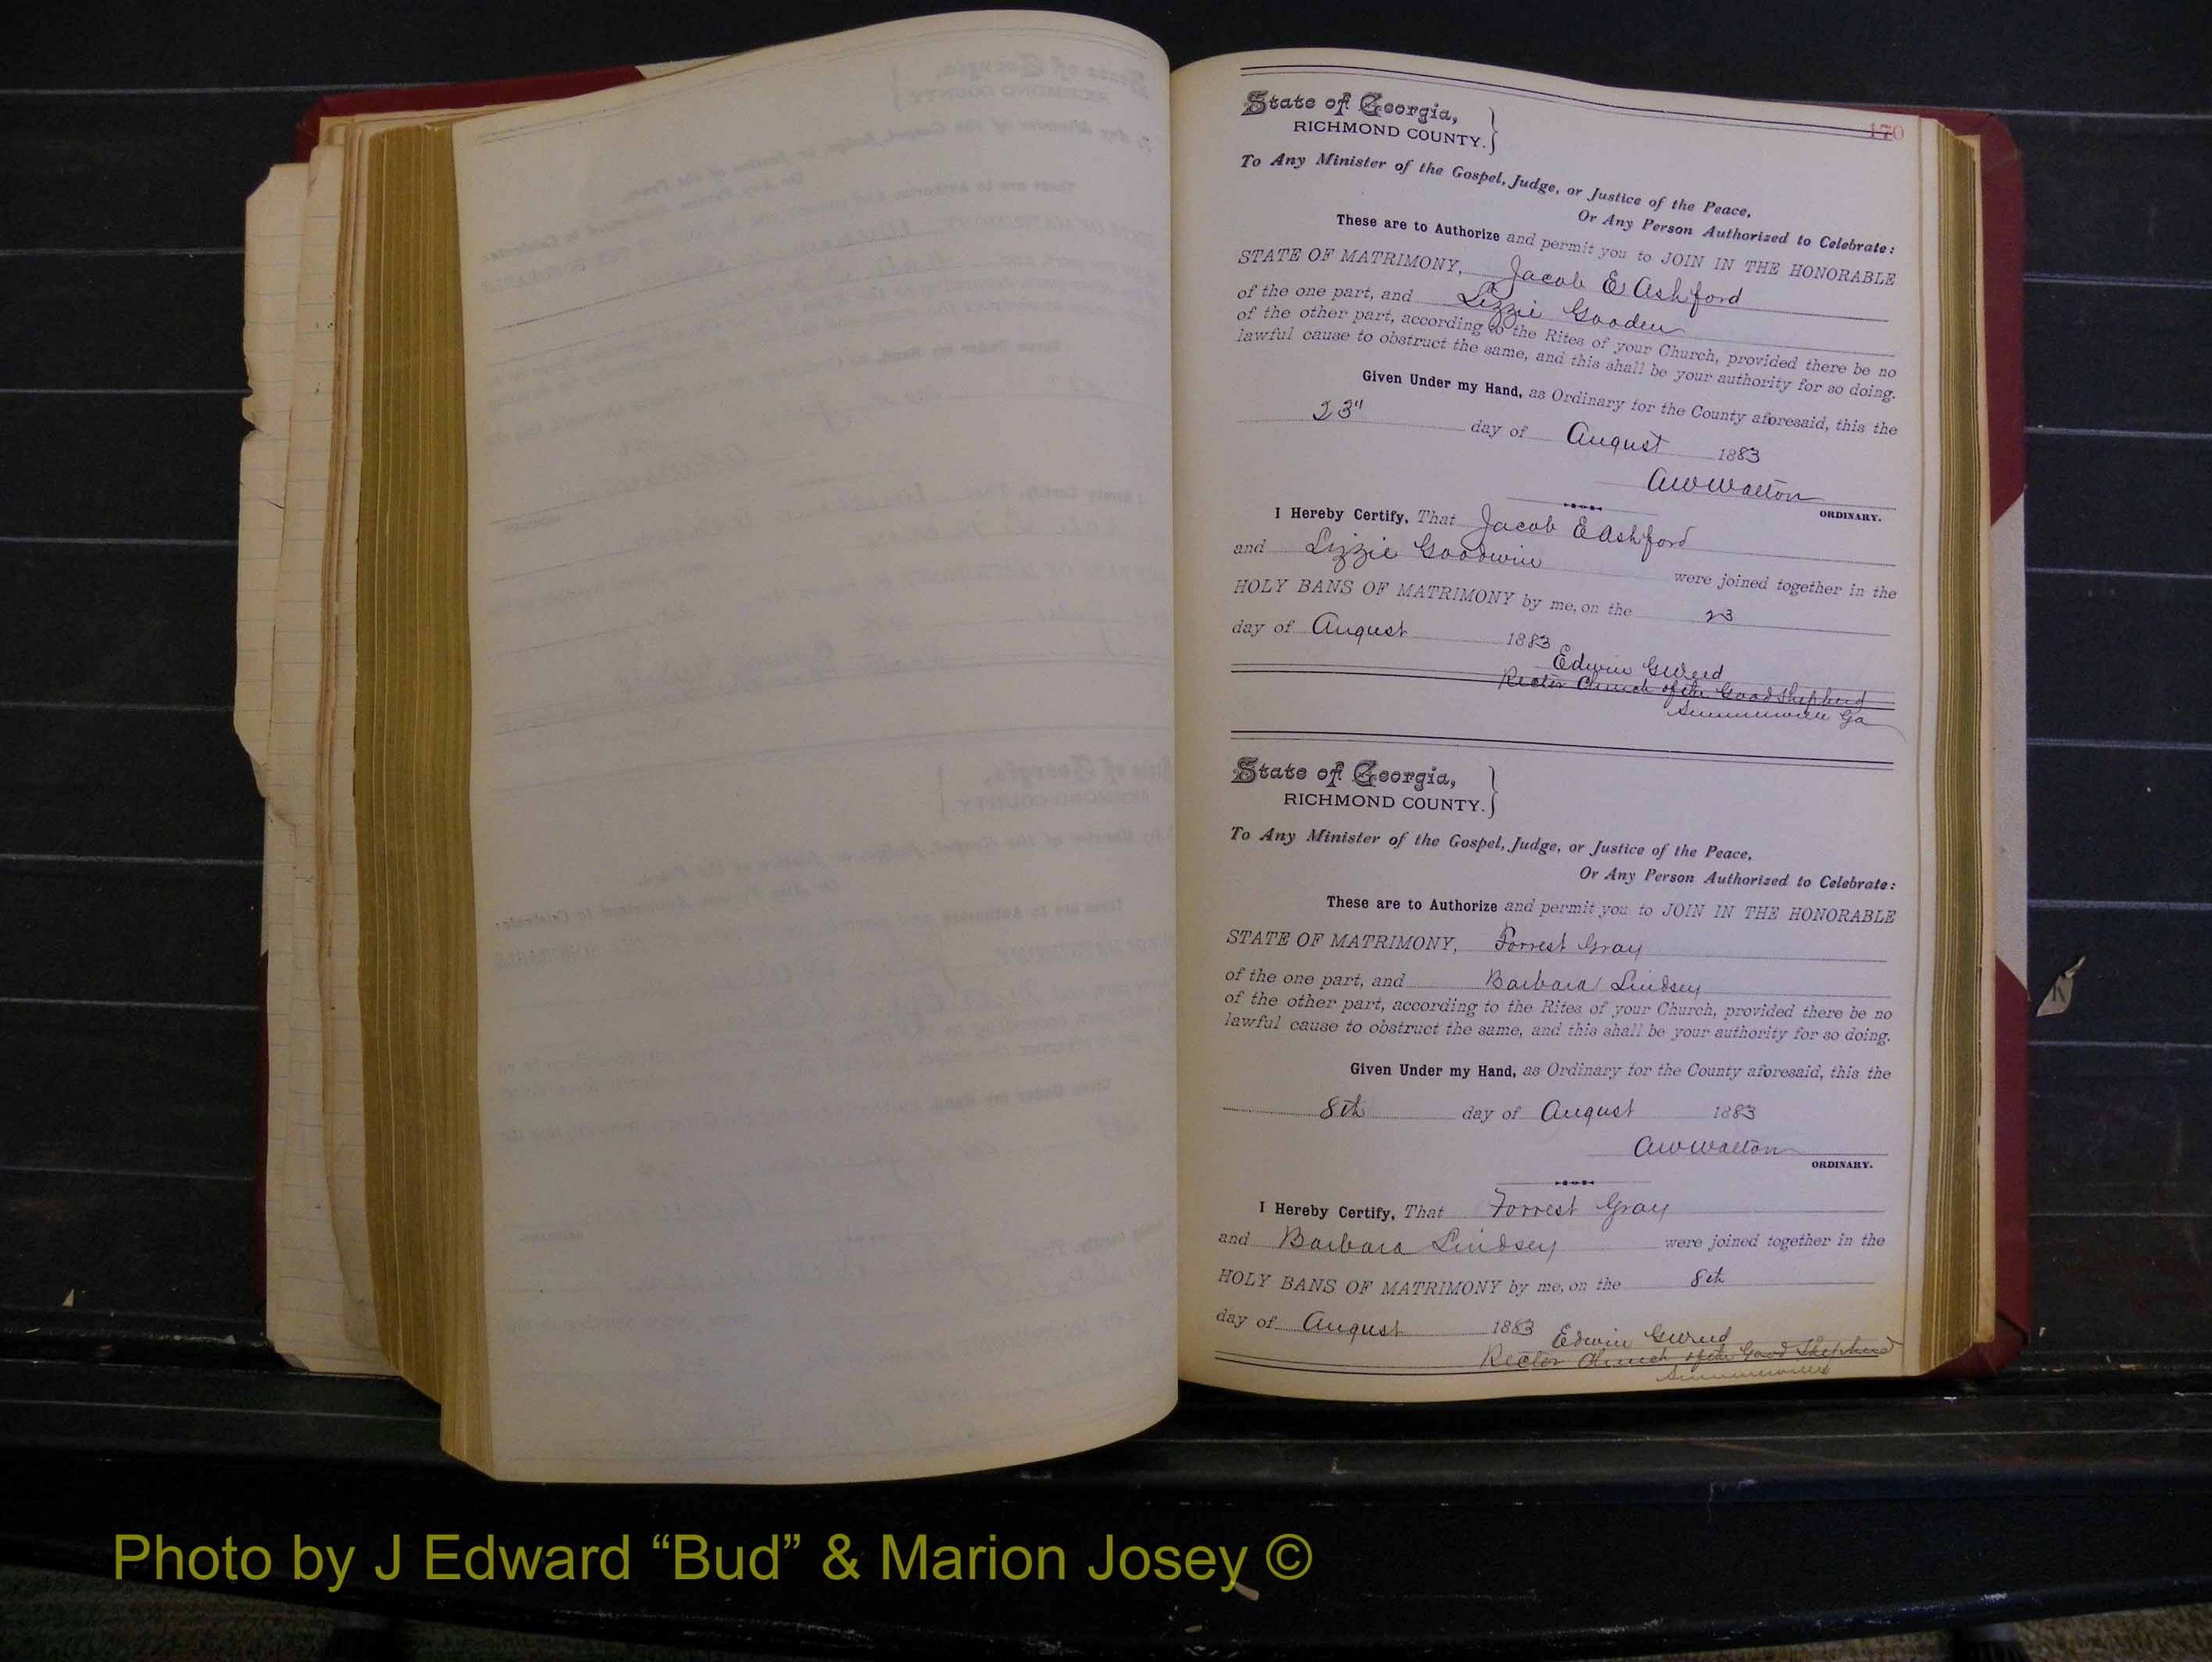 170
State of Georgia,
RICHMOND COUNTY.
To Any Minister of the Gospel, Judge, or Justice of the Peace,
Or Any Person Authorized to Celebrate:
These are to Authorize and permit you to JOIN IN THE HONORABLE
STATE OF MATRIMONY, Jacob E Ashford
of the one part, and Lizzie Gooden
of the other part, according to the Rites of your Church, provided there be no
lawful cause to obstruct the same, and this shall be your authority for so doing.
Given Under my Hand, as Ordinary for the County aforesaid, this the
23" day of August 1883
AW Walton
ORDINARY.
I Hereby Certify, That Jacob E Ashford
and Lizzie Goodwin were joined together in the
HOLY BANS OF MATRIMONY by me, on the 23
day of August 1883
Edwin G Weed
Rector Church of the Good Shepherd
Summerville Ga
State of Georgia,
RICHMOND COUNTY.
To Any Minister of the Gospel, Judge, or Justice of the Peace,
Or Any Person Authorized to Celebrate:
These are to Authorize and permit you to JOIN IN THE HONORABLE
STATE OF MATRIMONY, Forrest Gray
of the one part, and Barbara Lindsey
of the other part, according to the Rites of your Church, provided there be no
lawful cause to obstruct the same, and this shall be your authority for so doing.
Given Under my Hand, as Ordinary for the County aforesaid, this the
8th day of August 1883
AW Walton
ORDINARY.
I Hereby Certify, That Forrest Gray
and Barbara Lindsey were joined together in the
HOLY BANS OF MATRIMONY by me, on the 8th
day of August 1883 Edwin G Weed
Rector Church of the Good Shepherd
Summerville
Photo by J Edward “Bud” & Marion Josey ©